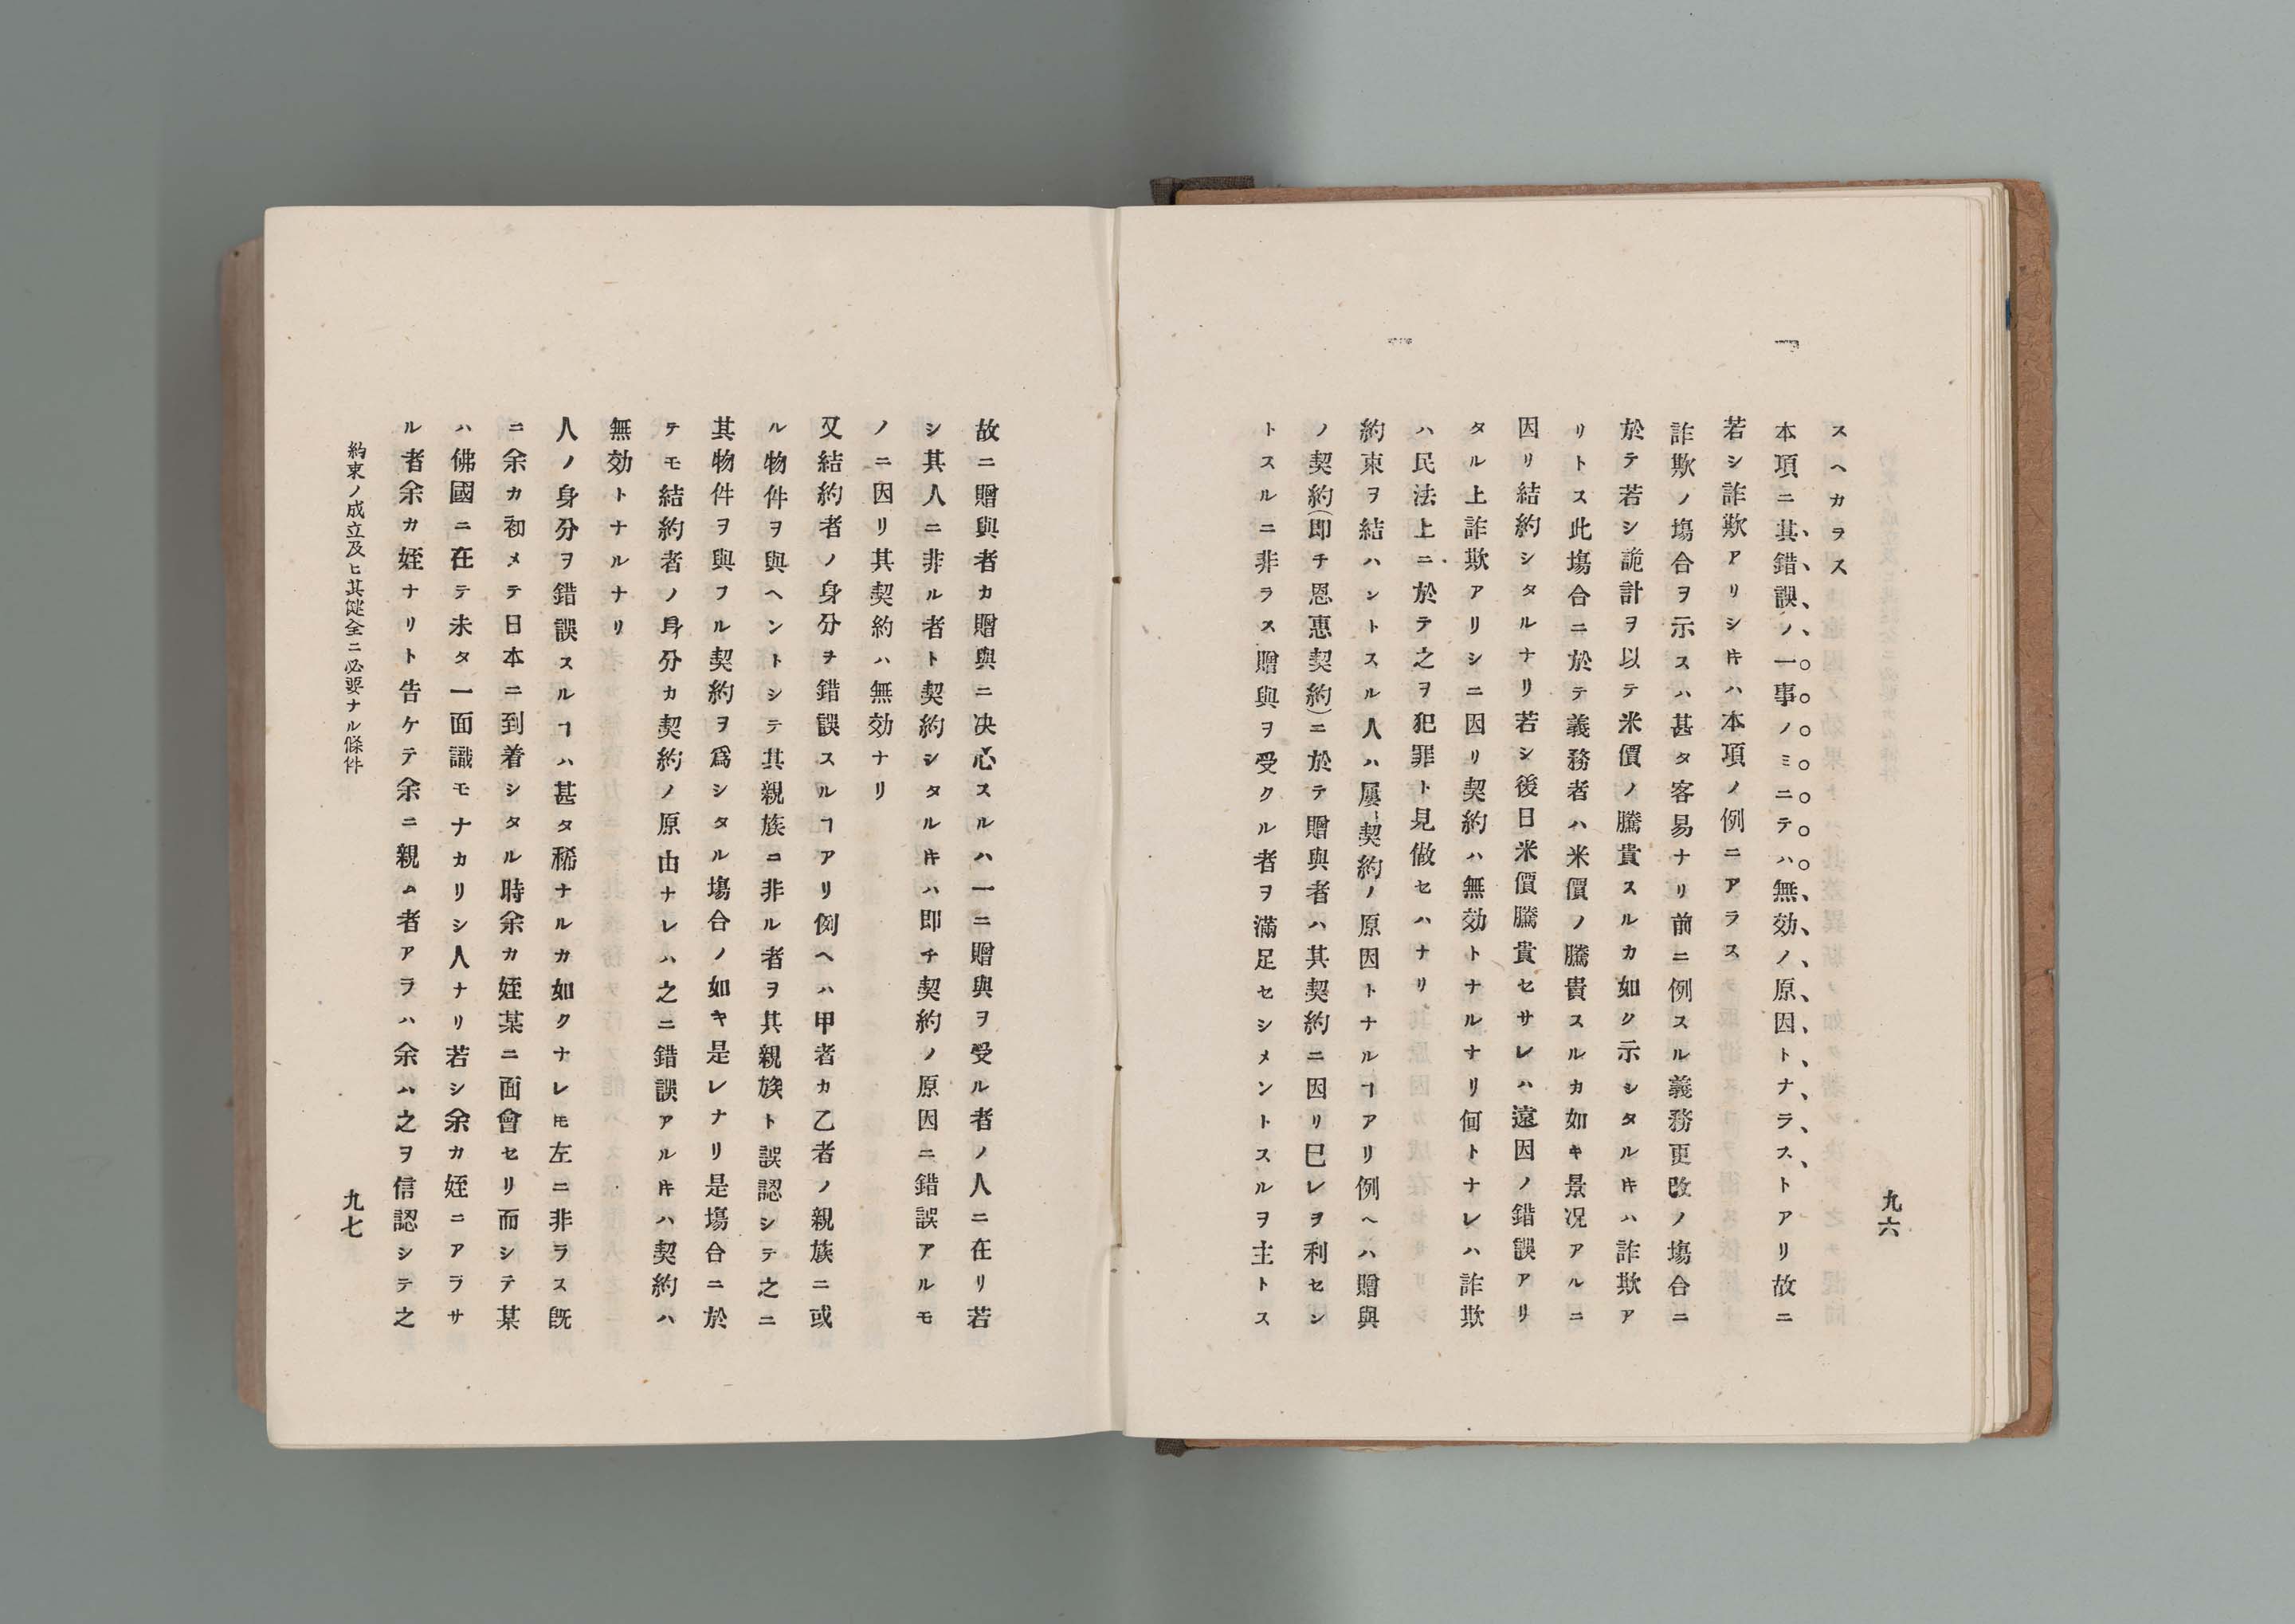 九六
スヘカラス
本項ニ其錯誤ノ一事ノミニテハ無効ノ原因トナラストアリ故ニ
若シ詐欺アリシ𪜈ハ本項ノ例ニアラス
詐欺ノ塲合ヲ示スハ甚タ客易ナリ前ニ例スル義務更改ノ塲合ニ
於テ若シ詭計ヲ以テ米價ノ騰貴スルカ如ク示シタルキハ詐欺ア
リトス此塲合ニ於テ義務者ハ米價ノ騰貴スルカ如キ景况アルニ
因リ結約シタルナリ若シ後日米價騰貴セサレハ遠因ノ錯誤アリ
タル上詐欺アリシニ因リ契約ハ無効トナルナリ何トナレハ詐欺
ハ民法上ニ於テ之ヲ犯罪ト見做セハナリ
約束ヲ結ハントスル人ハ屢契約ノ原因トナルヿアリ例ヘハ贈與
ノ契約(即チ恩惠契約)ニ於テ贈與者ハ其契約ニ因リ巳レヲ利セン
トスルニ非ラス贈與ヲ受クル者ヲ滿足セシメントスルヲ主トス
故ニ贈與者カ贈與ニ决心スルハ一ニ贈與ヲ受ル者ノ人ニ在リ若
シ其人ニ非ル者ト契約シタルキハ即チ契約ノ原因ニ錯誤アルモ
ノニ因リ其契約ハ無効ナリ
又結約者ノ身分ヲ錯誤スルヿアリ例ヘハ甲者カ乙者ノ親族ニ或
ル物件ヲ與ヘントシテ其親族ニ非ル者ヲ其親族ト誤認シテ之ニ
其物件ヲ與フル契約ヲ爲シタル塲合ノ如キ是レナリ是塲合ニ於
テモ結約者ノ身分カ契約ノ原由ナレハ之ニ錯誤アルキハ契約ハ
無効トナルナリ
人ノ身分ヲ錯誤スルヿハ甚タ稀ナルカ如クナレ𪜈左ニ非ラス既
ニ余カ初メテ日本ニ到着シタル時余カ姪某ニ面會セリ而シテ某
ハ佛國ニ在テ未タ一面識モナカリシ人ナリ若シ余カ姪ニアラサ
ル者余カ姪ナリト告ケテ余ニ親ム者アラハ余ハ之ヲ信認シテ之
約束ノ成立及ヒ其健全ニ必要ナル條件
九七